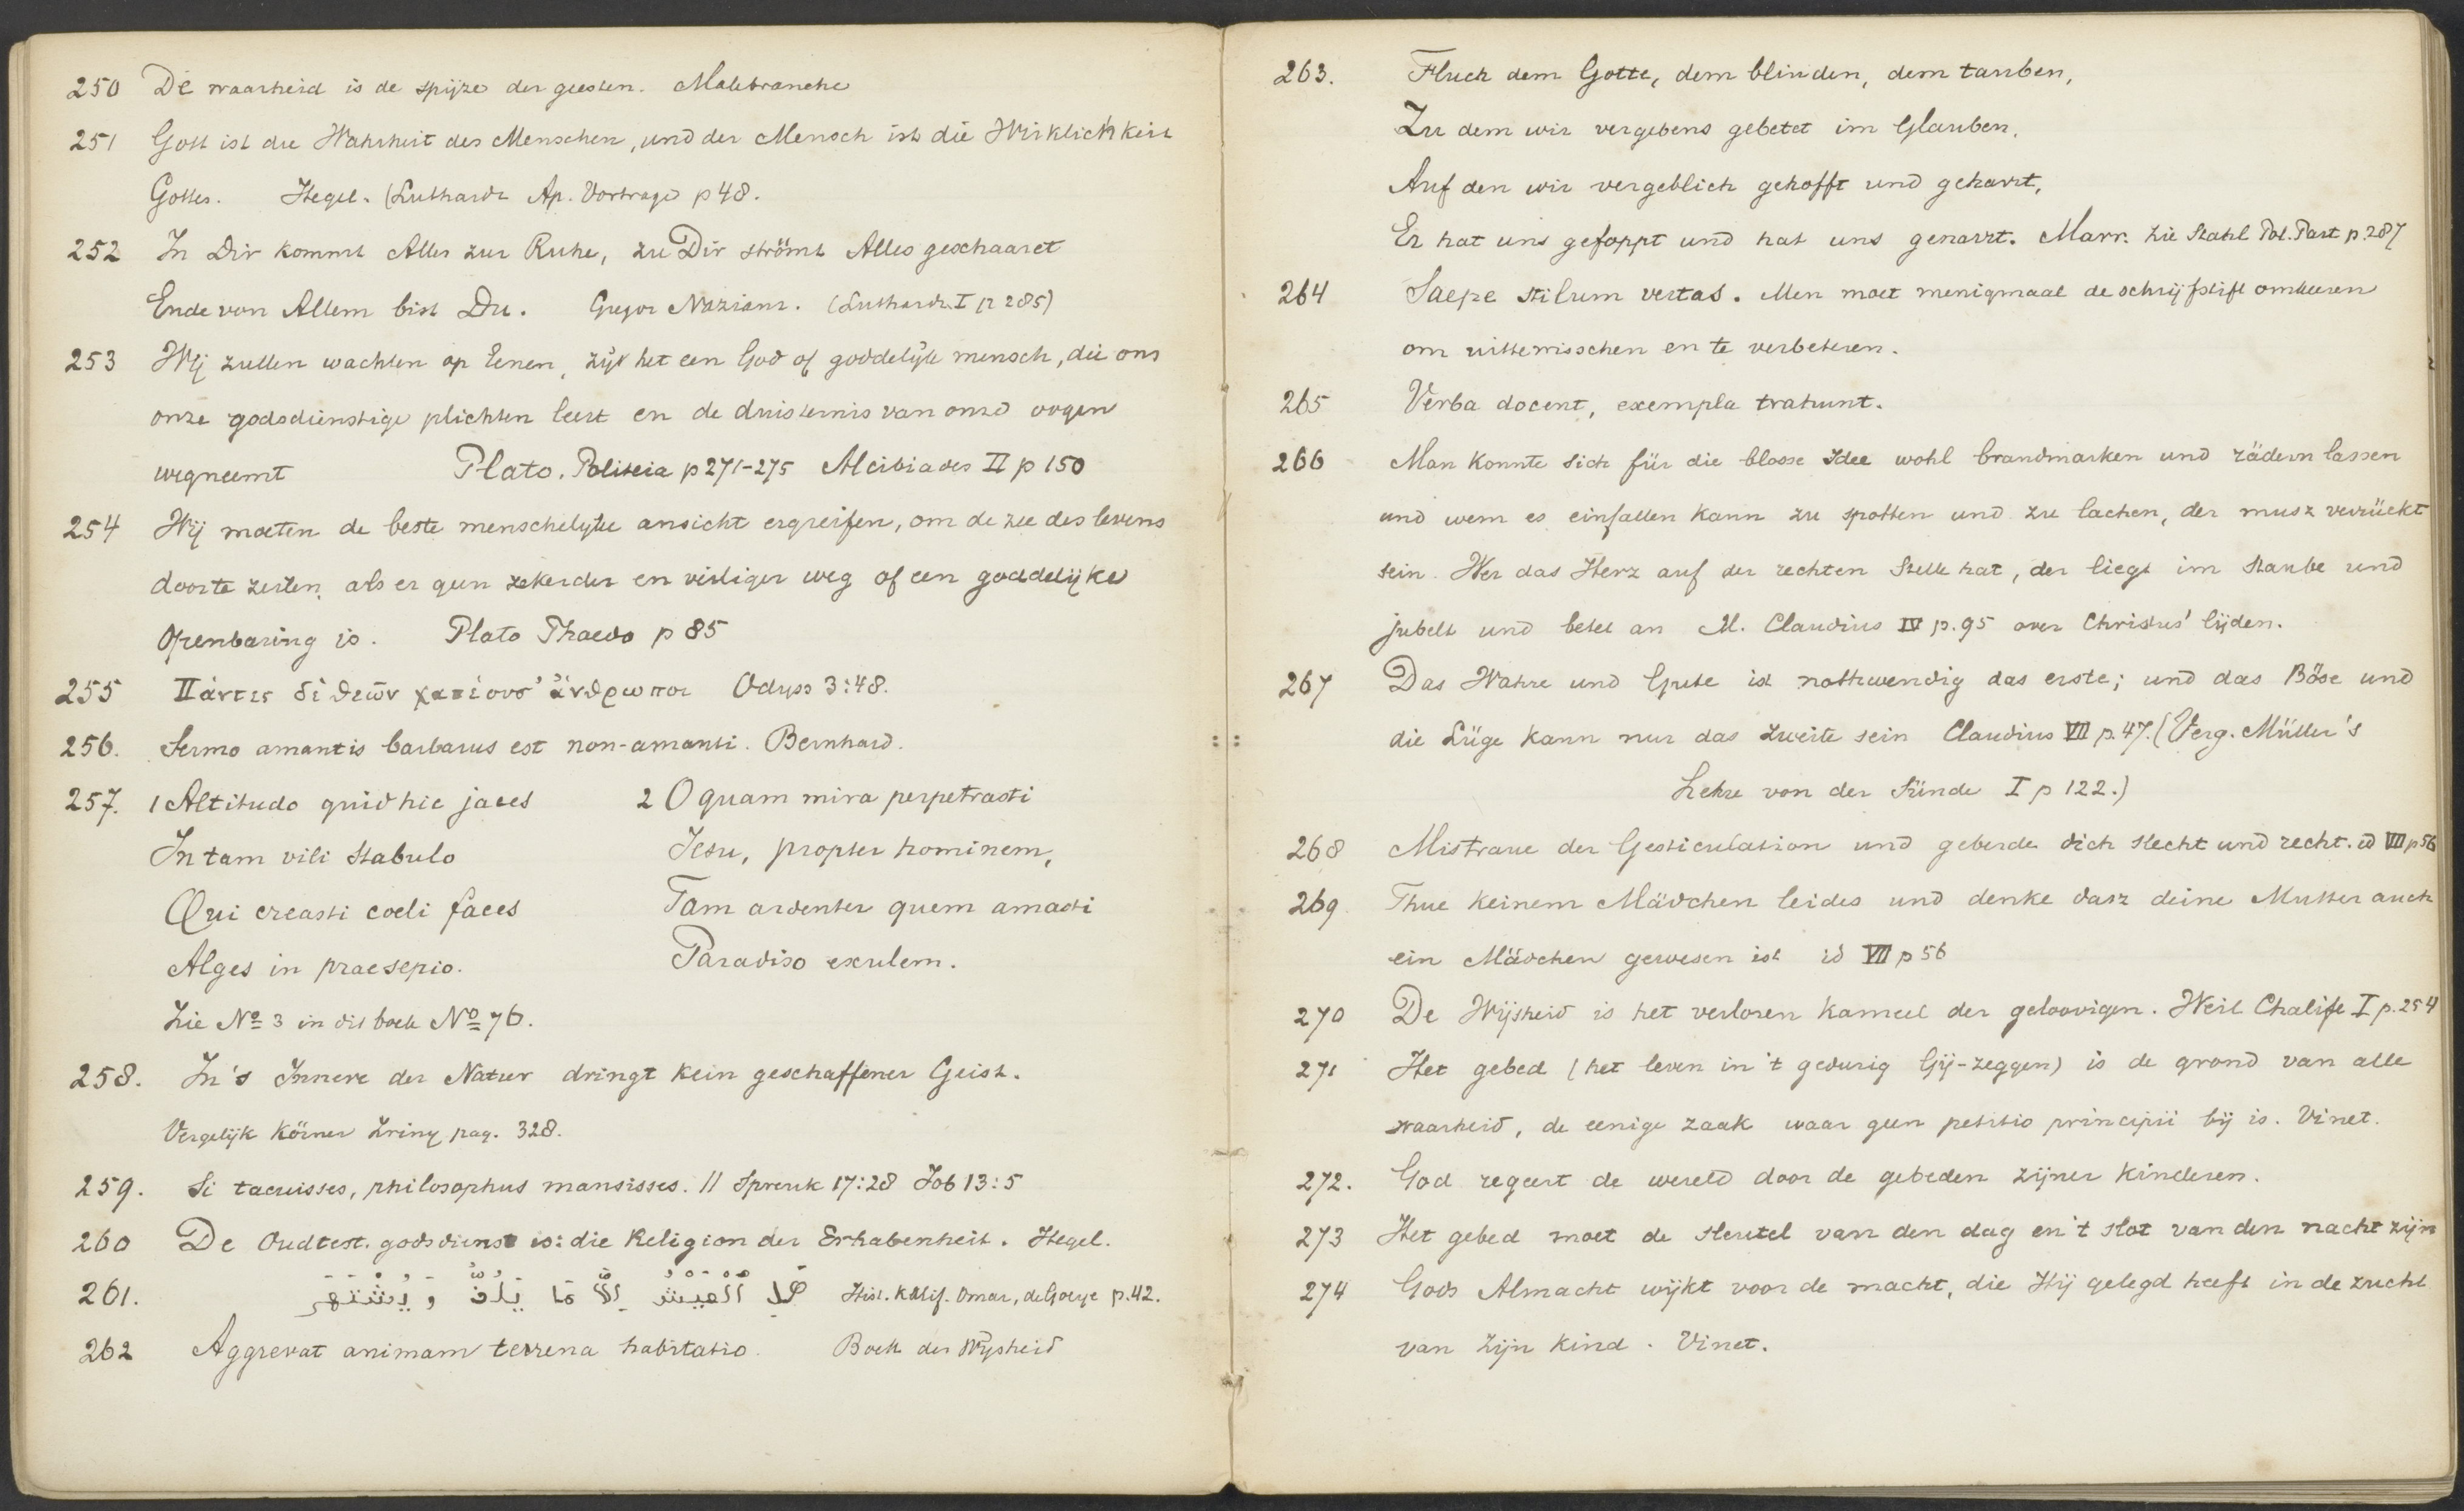 250 De waarheid is de spijze der geesten. Malebranche
251 Gott ist die Wahrheit des Menschen, und der Mensch ist die Wirklichkeit
Gottes. Hegel. (Luthardt Ap. Vortrage p 48.
252 In Dir kommt Alles zur Ruhe, zu Dir strömt Alles geschaaret
Ende von Allem bist Du. Gregor Nazianz. (Luthardt I p 285)
253 Wij zullen wachten op Eenen, zij het een God of goddelijk mensch, die ons
onze godsdienstige plichten leert en de duisternis van onze oogen
wegneemt Plato. Politeia p 271-275 Alcibiades II p 150
254 Wij moeten de beste menschelijke ansicht ergreifen, om de zee des levens
door te zeilen, als er geen zekerder en veiliger weg of een goddelijke
Openbaring is. Plato Phaedo p 85
255 Πάντες δὲ θεῶν χατέουσ' ἄνθρωποι Odyss 3:48.
256. Sermo amantis barbarus est non-amanti. Bernhard.
257. 1 Altitudo quid hic jaces 2 O quam mira perpetrasti
In tam vili stabulo Jesu, propter hominem,
Qui creasti coeli faces Tam ardenter quem amasti
Alges in praesepio. Paradiso exulem.
Zie Nº 3 in dit boek Nº 76.
258. In's Innere der Natur dringt kein geschaffener Geist.
Vergelijk Körner Zriny pag. 328.
259. Si tacuisses, philosophus mansisses. // Spreuk 17:28 Job 13:5
260 De Oudtest. godsdienst is: die Religion der Erhabenheit. Hegel.
261. Hist. Khalif. Omar, de Goeje p. 42.
262 Aggrevat animam terrena habitatio. Boek der Wijsheid
263. Fluch dem Gotte, dem blinden, dem tauben,
Zu dem wir vergebens gebetet im Glauben,
Auf den wir vergeblich gehofft und geharrt,
Er hat uns gefoppt und hat uns genarrt. Marr. Zie Stahl Pol. Part p. 287
264 Saepe stilum vertas. Men moet menigmaal de schrijfstift omkeeren
om uittewisschen en te verbeteren.
265 Verba docent, exempla trahunt.
266 Man konnte sich für die blosse Idee wohl brandmarken und rädern lassen
und wem es einfallen kann zu spotten und zu lachen, der musz verrückt
sein. Wer das Herz auf der rechten Stelle hat, der liegt im Staube und
jubelt und betet an M. Claudius IV p. 95 over Christus' lijden.
267 Das Wahre und Gute ist nothwendig das erste; und das Böse und
die Lüge kann nur das zweite sein Claudius VII p. 47. (Verg. Müller's
Lehre von der Sünde I p 122.)
268 Mistraue der Gesticulation und geberde dich slecht und recht. id VII p 56
269 Thue keinem Mädchen leides und denke dasz deine Mutter auch
ein Mädchen gewesen ist id VII p 56
270 De Wijsheid is het verloren kameel der geloovigen. Weil Chalife I p. 254
271 Het gebed (het leven in 't gedurig Gij-zeggen) is de grond van alle
waarheid, de eenige zaak waar geen petitio principii bij is. Vinet.
272. God regeert de wereld door de gebeden zijner kinderen.
273 Het gebed moet de sleutel van den dag en 't slot van den nacht zijn
274 Gods Almacht wijkt voor de macht, die Hij gelegd heeft in de zucht
van zijn kind. Vinet.